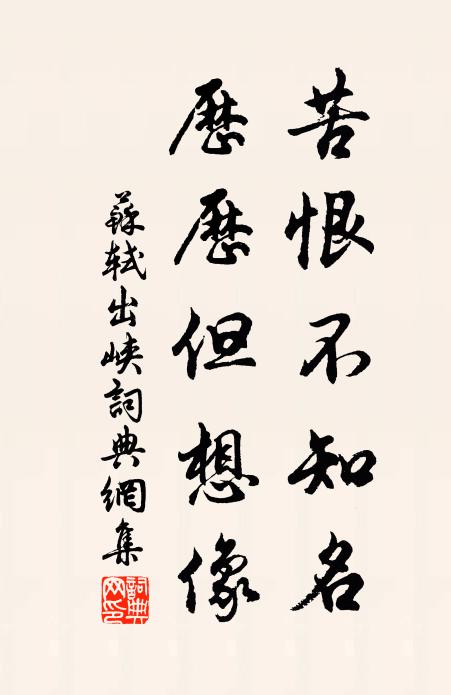 苦恨不知名
歷歷但想像
蘇軾出峽詞典網集
詞典网印